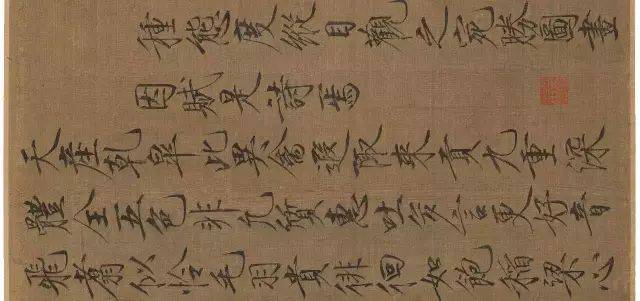 種態度縱目觀之宛勝圖畫
因賦是詩焉
天產乾皋此異禽遐陬來貢九重深
體全五色非凡質惠吐多言更好音
飛翥似怜毛羽貴徘徊如飽稻粱心